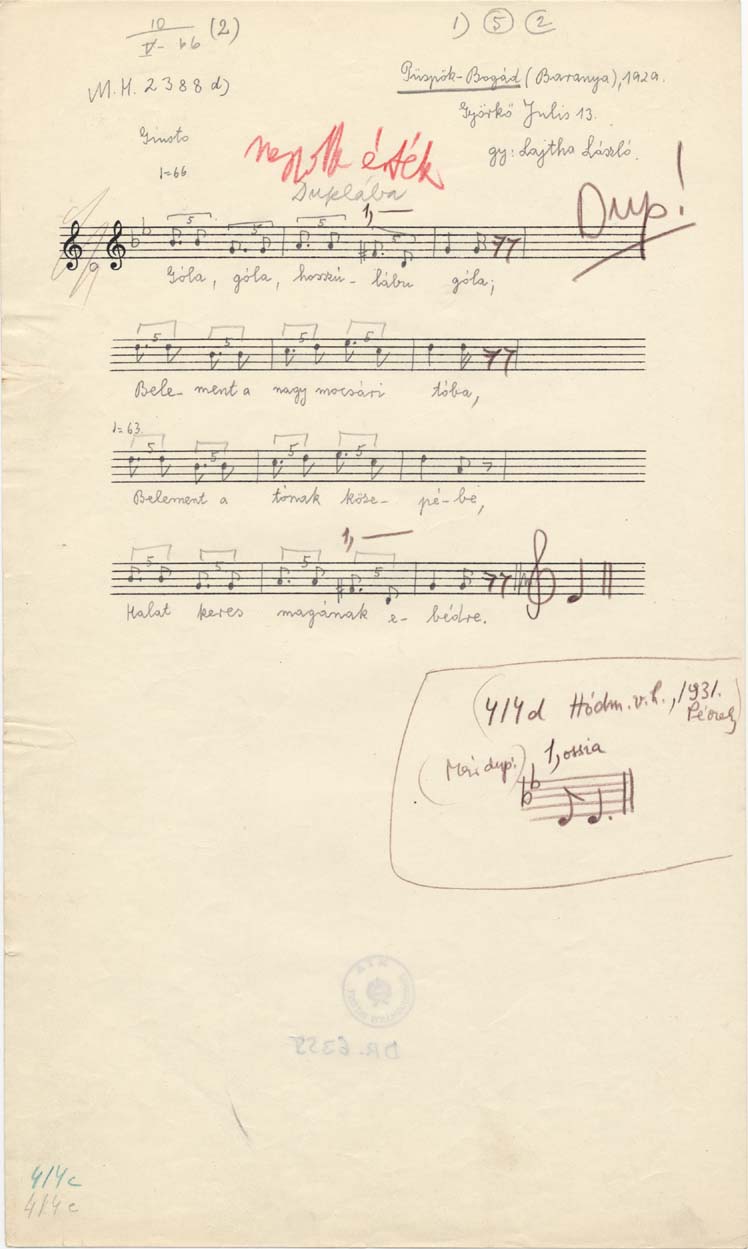 10
V-66 (2)
1) 5 2
M.H. 2388 d)
Püspök-Bogád (Baranya), 1929.
Györkő Julis 13.
gy: Lajtha László.
Giusto
♩=66
érték
Duplába
Dup!
1,—
5 5 5
Góla, góla, hosszú-lábu góla;
5 5 5 5
Bele-ment a nagy mocsári tóba,
♩=63.
5 5 5 5
Belement a tónak köze-pé-be,
1,—
5 5 5 5
Halat keres magának e-bédre.
4/4d Hódm.v.h., 1931.
Péczely
dup.) 1, ossia
DR. 6358
4/4c
4/4c